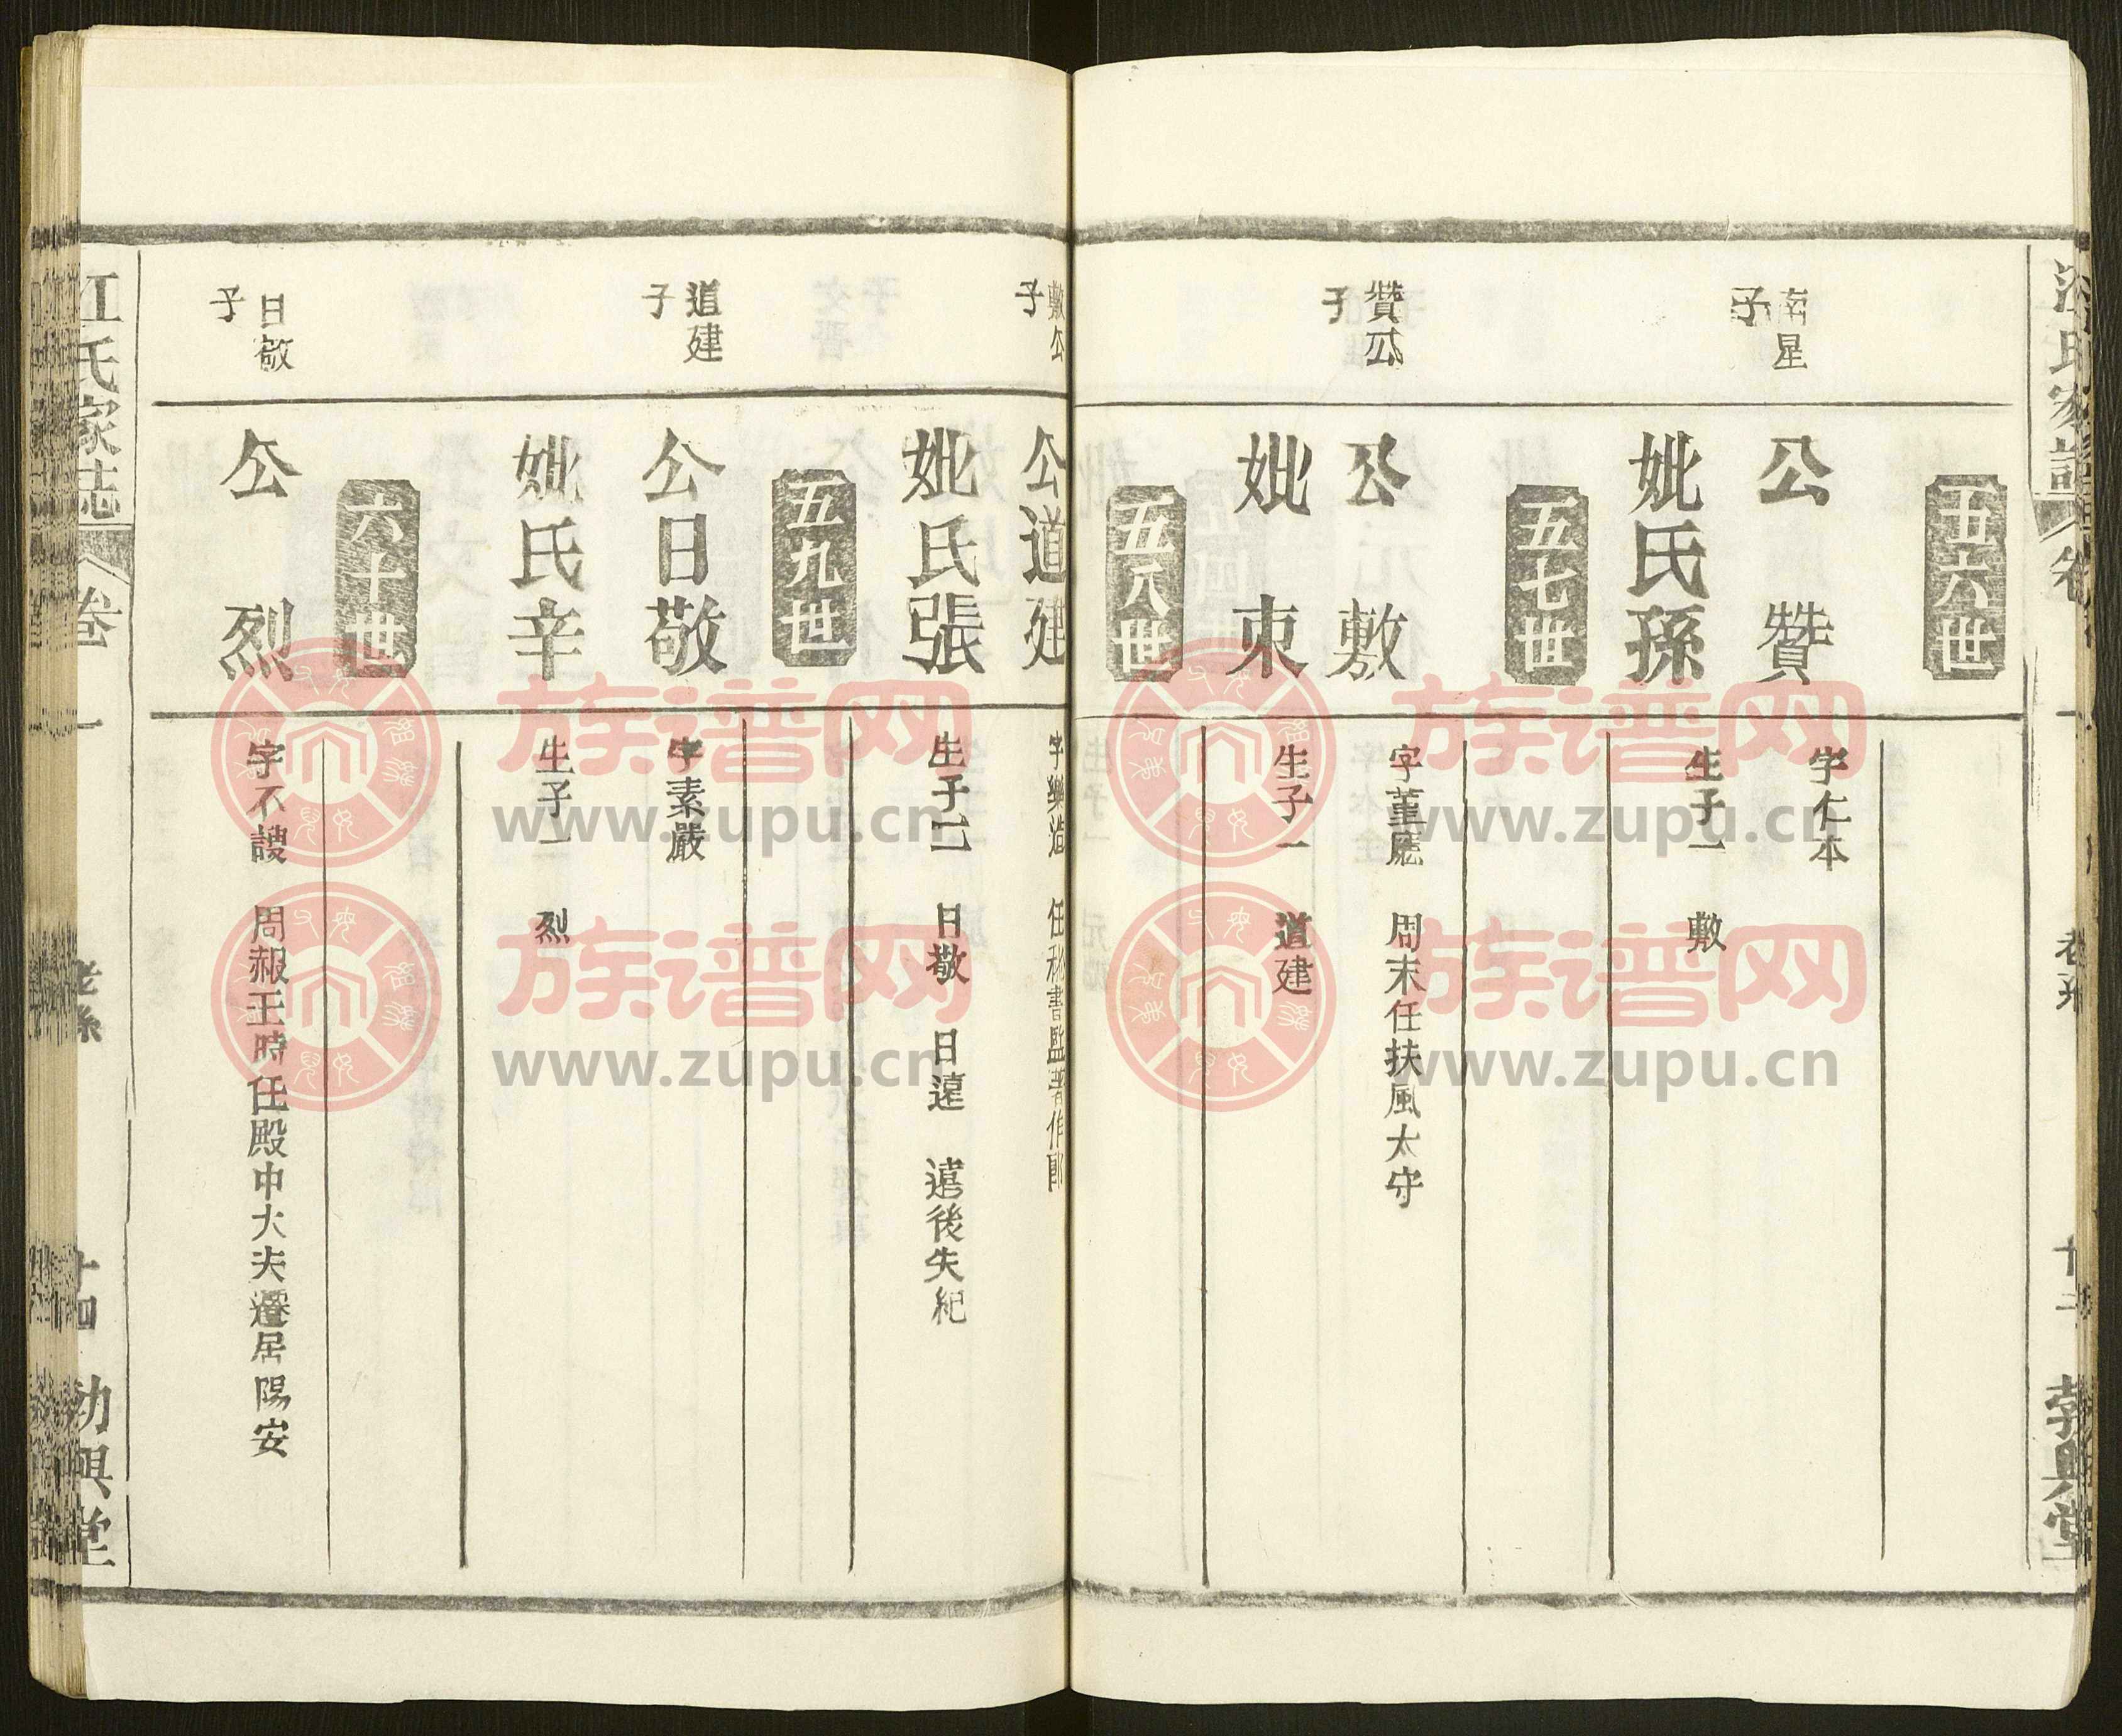 五六世
南星
子
公 贊
字仁本
妣氏孫
生子一 敷
五七世
贊公
子
公 敷
字堇廳 周末任扶風太守
妣 東
生子一 道建
五八世
敷公
子
公道建
字樂造 任秘書監著作郎
妣氏張
生子二 日敬 日遠 遠後失紀
五九世
道建
子
公日敬
字素嚴
妣氏辛
生子一 烈
六十世
日敬
子
公 烈
字不謏 周赧王時任殿中大夫遷居陽安
江氏家志
卷一
老系
十四
興堂
族谱网
www.zupu.cn
族谱网
www.zupu.cn
族谱网
www.zupu.cn
族谱网
www.zupu.cn